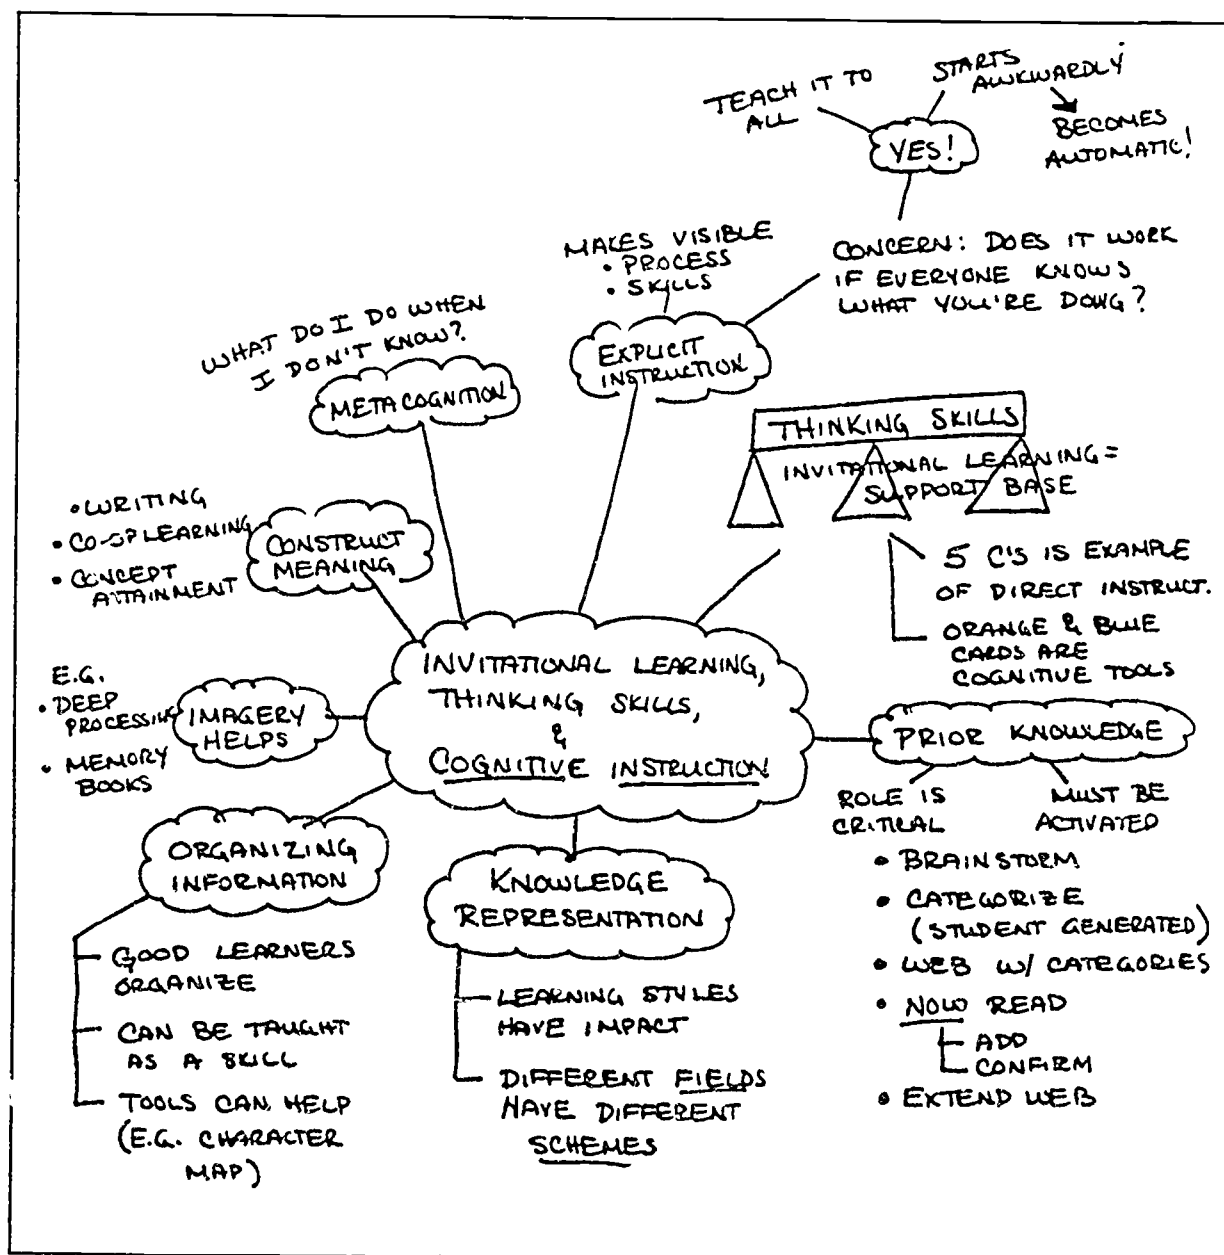 TEACH IT TO
ALL
STARTS
AWKWARDLY
BECOMES
AUTOMATIC!
YES!
CONCERN: DOES IT WORK
IF EVERYONE KNOWS
WHAT YOU'RE DOING?
MAKES VISIBLE
• PROCESS
• SKILLS
EXPLICIT
INSTRUCTION
WHAT DO I DO WHEN
I DON'T KNOW?
METACOGNITION
THINKING SKILLS
INVITATIONAL LEARNING =
SUPPORT BASE
5 C'S IS EXAMPLE
OF DIRECT INSTRUCT.
ORANGE & BLUE
CARDS ARE
COGNITIVE TOOLS
• WRITING
• CO-OP LEARNING
• CONCEPT
ATTAINMENT
CONSTRUCT
MEANING
INVITATIONAL LEARNING,
THINKING SKILLS,
&
COGNITIVE INSTRUCTION
E.G.
• DEEP
PROCESSING
• MEMORY
BOOKS
IMAGERY
HELPS
PRIOR KNOWLEDGE
ROLE IS
CRITICAL
MUST BE
ACTIVATED
• BRAINSTORM
• CATEGORIZE
(STUDENT GENERATED)
• WEB W/ CATEGORIES
• NOW READ
ADD
CONFIRM
• EXTEND WEB
ORGANIZING
INFORMATION
GOOD LEARNERS
ORGANIZE
CAN BE TAUGHT
AS A SKILL
TOOLS CAN HELP
(E.G. CHARACTER
MAP)
KNOWLEDGE
REPRESENTATION
LEARNING STYLES
HAVE IMPACT
DIFFERENT FIELDS
HAVE DIFFERENT
SCHEMES